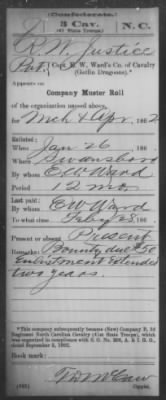 (Confederate.)
3 Cav. N.C.
(41 State Troops.)
R. W. Justice
Pvt, Capt. E. W. Ward's Co. of Cavalry
(Gatlin Dragoons).*
Appears on
Company Muster Roll
of the organization named above,
for Mch & Apr, 1862
Enlisted:
When Jan 26, 186
Where Swansboro
By whom E W Ward
Period 12 mo
Last paid:
By whom E W Ward
To what time Feby 28, 186
Present or absent Present
Remarks: Bounty due $50
Enlistment extended
two years.
*This company subsequently became (New) Company B, 3d
Regiment North Carolina Cavalry (41st State Troops), which
was organized in compliance with S. O. No.
dated September 3, 1862.
Book mark:
(642)
Copyist.